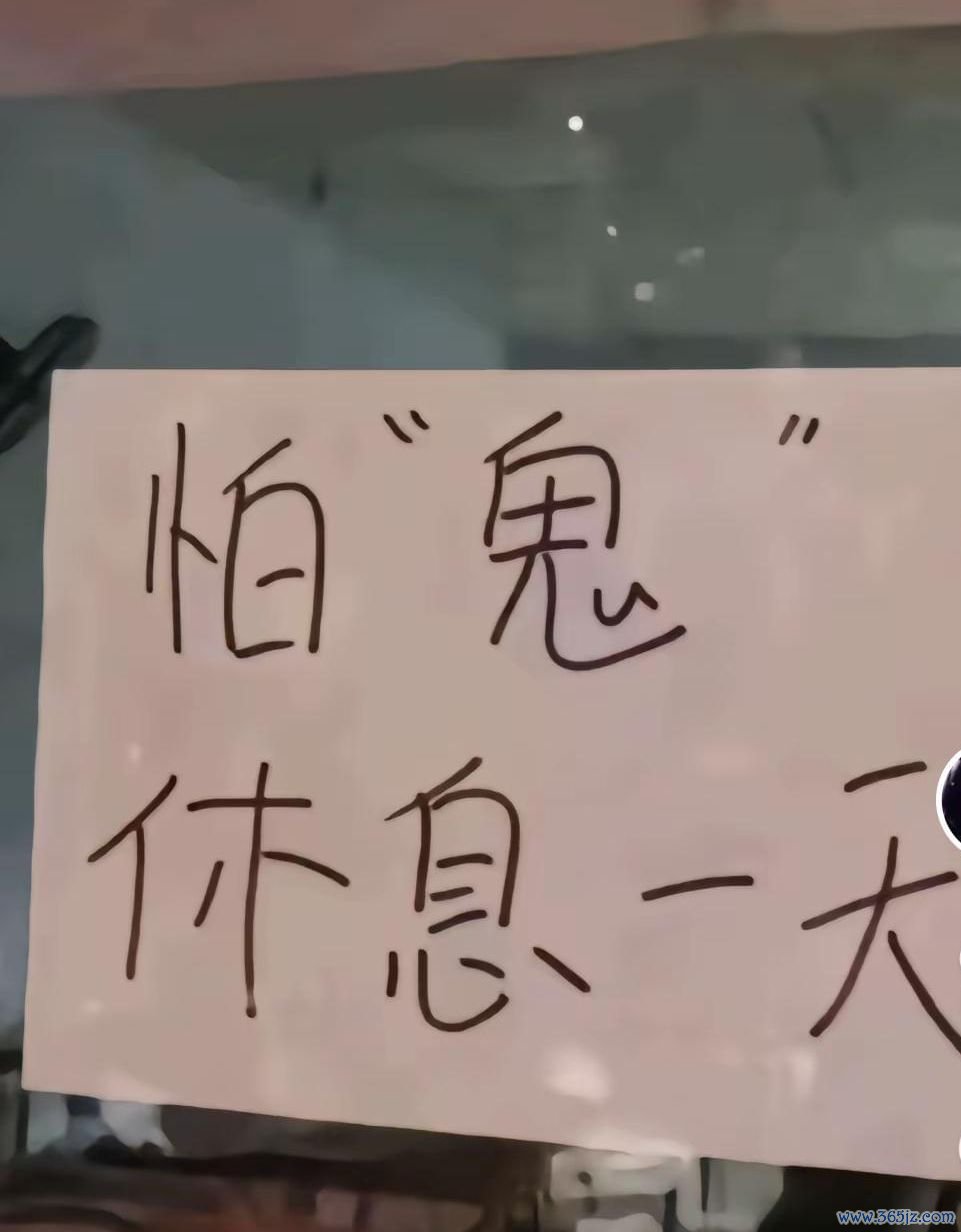 怕“鬼 ”
休息一天
www.365jz.com